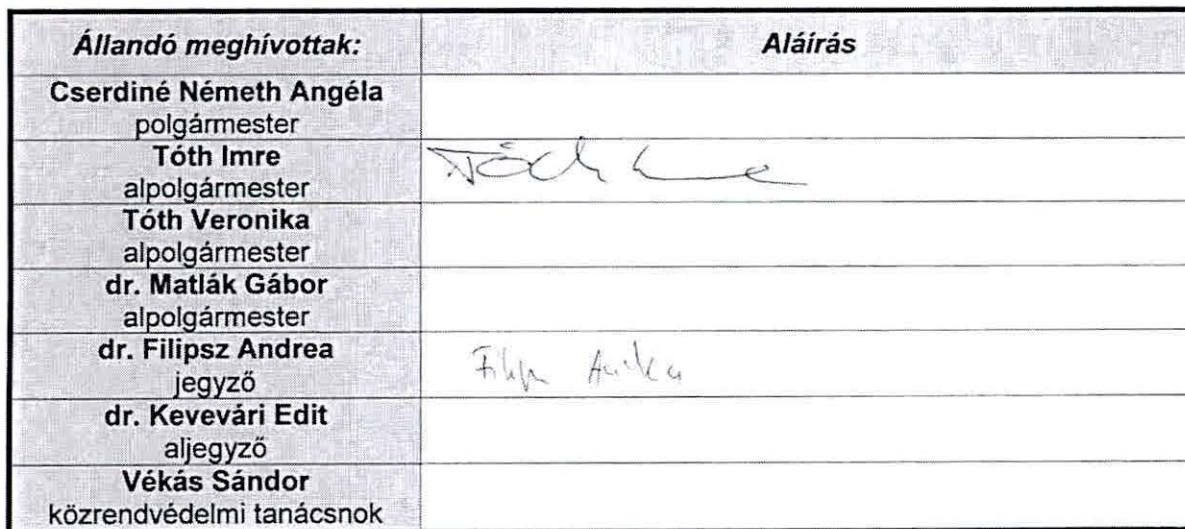 Állandó meghívottak: Aláírás
Cserdiné Németh Angéla
polgármester
Tóth Imre Tóth Imre
alpolgármester
Tóth Veronika
alpolgármester
dr. Matlák Gábor
alpolgármester
dr. Filipsz Andrea
jegyző
dr. Kevevári Edit
aljegyző
Vékás Sándor
közrendvédelmi tanácsnok